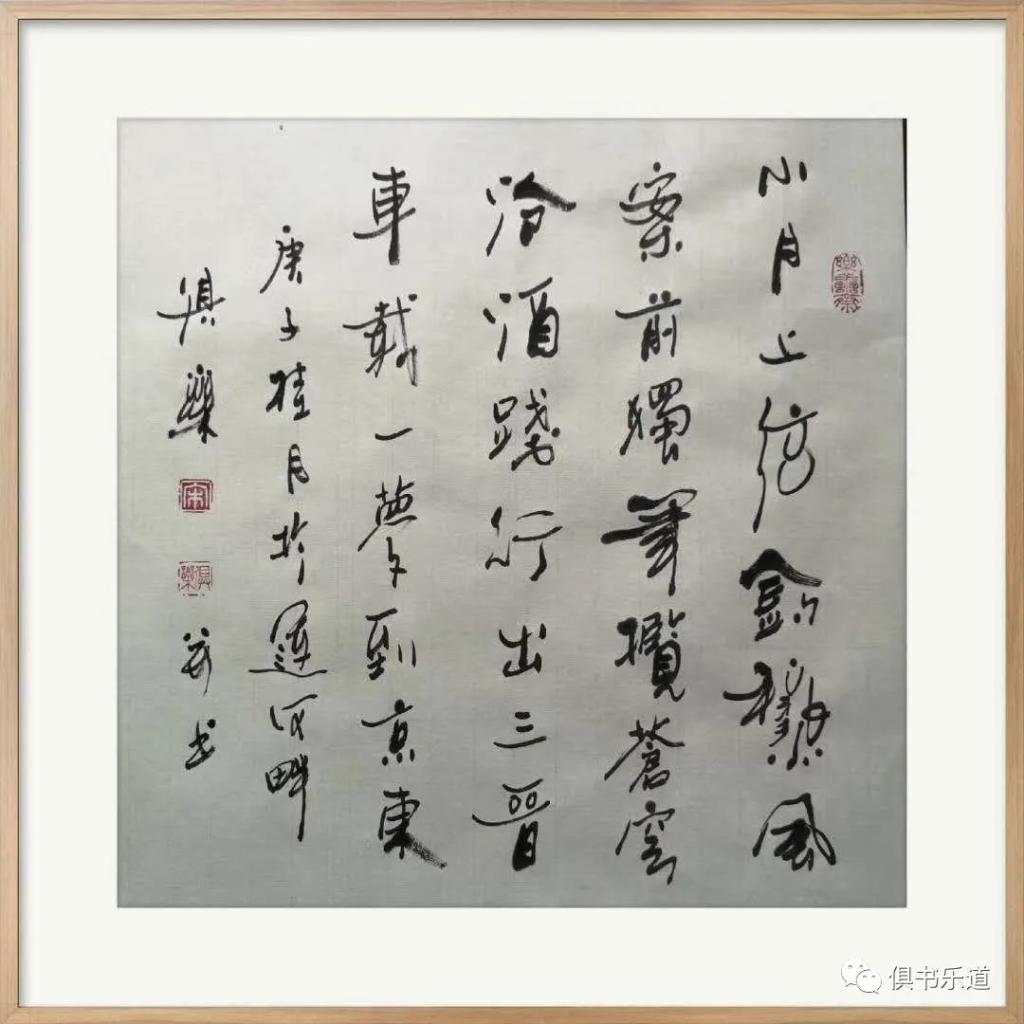 小月上弦風
案前獨筆攬蒼穹
汾酒踐行出三晉
車載一夢到京東
庚子桂月於運河畔
俱樂
宋
俱樂
并书
俱书乐道